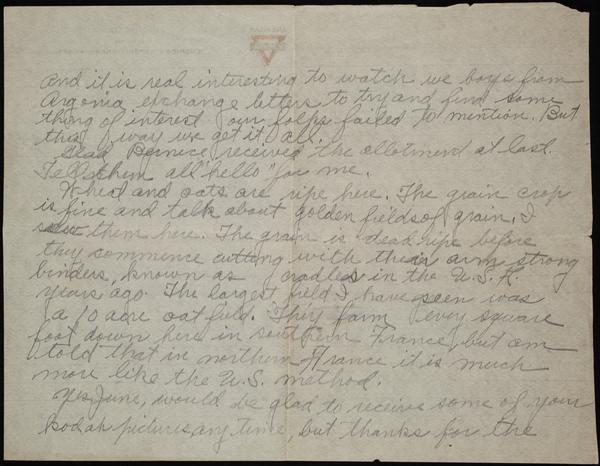 and it is real interesting to watch we boys from
Argonia exchange letters to try and find some
thing of interest our folks failed to mention. But
this way we get it all.
Glad Bernice received the allotment at last.
Tell them all "hello" for me.
Wheat and oats are ripe here. The grain crop
is fine and talk about golden fields of grain, I
saw them here. The grain is dead ripe before
they commence cutting with their arm strong
binders, known as cradles in the U.S.A.
years ago. The largest field I have seen was
a 10 acre oat field. They farm every square
foot down here in southern France, but am
told that in northern France it is much
more like the U.S. method.
Yes June, would be glad to receive some of your
kodak pictures any time, but thanks for the